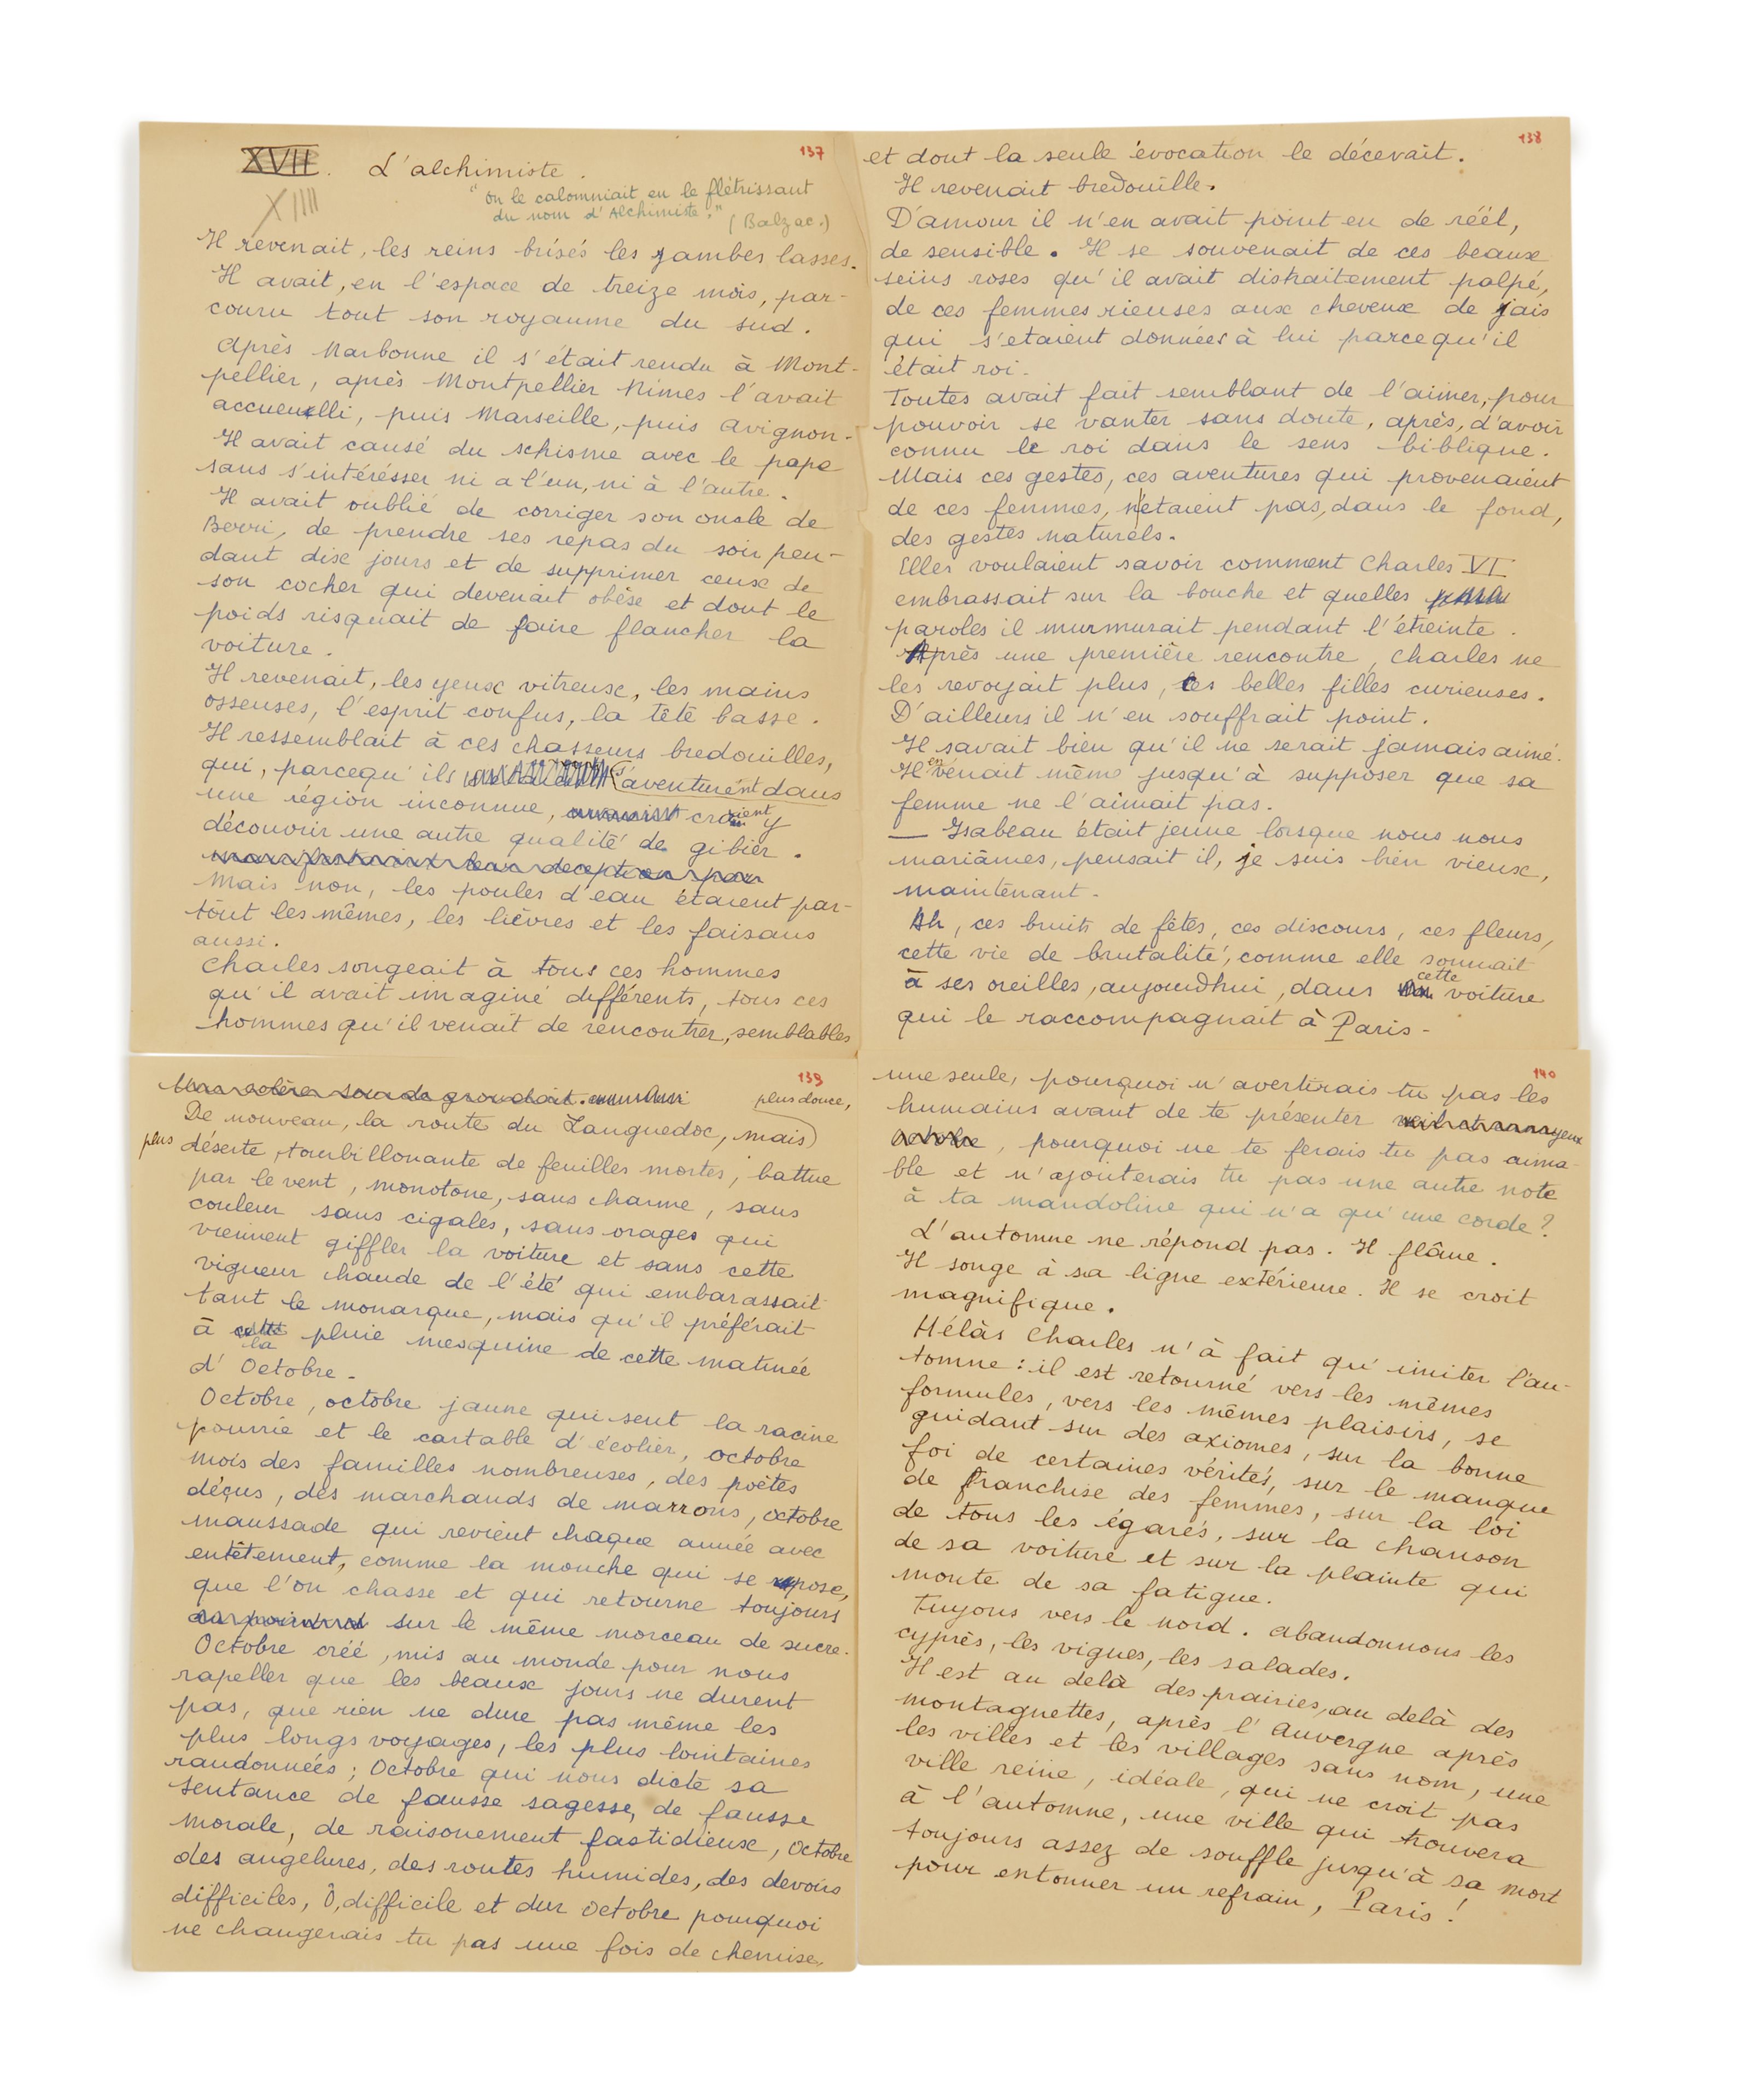 XVII. L'alchimiste.
137
XIIII
"on le calomniait en le flétrissant
du nom d'Alchimiste."
(Balzac.)
Il revenait, les reins brisés les jambes lasses.
Il avait, en l'espace de treize mois, par-
couru tout son royaume du sud.
Après Narbonne il s'était rendu à Mont-
pellier, après Montpellier Nimes l'avait
accueilli, puis Marseille, puis Avignon.
Il avait causé du schisme avec le pape
sans s'intérésser ni a l'un, ni à l'autre.
Il avait oublié de corriger son oncle de
Berri, de prendre ses repas du soir pen-
dant dix jours et de supprimer ceux de
son cocher qui devenait obèse et dont le
poids risquait de faire flancher la
voiture.
Il revenait, les yeux vitreux, les mains
osseuses, l'esprit confus, la tête basse.
Il ressemblait à ces chasseurs bredouilles,
qui, parcequ'ils s'aventurent dans
une région inconnue, croient y
découvrir une autre qualité de gibier.
manifestaient leur deception par
Mais non, les poules d'eau étaient par-
tout les mêmes, les lièvres et les faisans
aussi.
Charles songeait à tous ces hommes
qu'il avait imaginé différents, tous ces
hommes qu'il venait de rencontrer, semblables
138
et dont la seule évocation le décevait.
Il revenait bredouille.
D'amour il n'en avait point eu de réél,
de sensible. Il se souvenait de ces beaux
seins roses qu'il avait distraitement palpé,
de ces femmes rieuses aux cheveux de jais
qui s'etaient données à lui parcequ'il
était roi.
Toutes avait fait semblant de l'aimer, pour
pouvoir se vanter sans doute, après, d'avoir
connu le roi dans le sens biblique.
Mais ces gestes, ces aventures qui provenaient
de ces femmes, n'etaient pas, dans le fond,
des gestes naturels.
Elles voulaient savoir comment Charles VI
embrassait sur la bouche et quelles
paroles il murmurait pendant l'étreinte.
Après une première rencontre, Charles ne
les revoyait plus, les belles filles curieuses.
D'ailleurs il n'en souffrait point.
Il savait bien qu'il ne serait jamais aimé.
Il en venait même jusqu'à supposer que sa
femme ne l'aimait pas.
— Isabeau était jeune lorsque nous nous
mariâmes, pensait il, je suis bien vieux,
maintenant.
Ah, ces bruits de fêtes, ces discours, ces fleurs,
cette vie de brutalité, comme elle sonnait
à ses oreilles, aujourdhui, dans cette voiture
qui le raccompagnait à Paris.
139
Une colère sourde grondait.
De nouveau, la route du Languedoc, mais plus douce,
plus déserte, tourbillonante de feuilles mortes, battue
par le vent, monotone, sans charme, sans
couleur sans cigales, sans orages qui
viennent giffler la voiture et sans cette
vigueur chaude de l'été qui embarassait
tant le monarque, mais qu'il préférait
à cette la pluie mesquine de cette matinée
d'Octobre.
Octobre, octobre jaune qui sent la racine
pourrie et le cartable d'écolier, octobre
mois des familles nombreuses, des poètes
déçus, des marchands de marrons, octobre
maussade qui revient chaque année avec
entêtement, comme la mouche qui se repose,
que l'on chasse et qui retourne toujours
sur le même morceau de sucre.
Octobre créé, mis au monde pour nous
rapeller que les beaux jours ne durent
pas, que rien ne dure pas même les
plus longs voyages, les plus lointaines
randonnées; Octobre qui nous dicte sa
sentance de fausse sagesse, de fausse
morale, de raisonement fastidieux, Octobre
des angelures, des routes humides, des devoirs
difficiles, Ô, difficile et dur octobre pourquoi
ne changerais tu pas une fois de chemise,
140
une seule, pourquoi n'avertirais tu pas les
humains avant de te présenter
octobre, pourquoi ne te ferais tu pas aima-
ble et n'ajouterais tu pas une autre note
à ta mandoline qui n'a qu'une corde?
L'automne ne répond pas. Il flâne.
Il songe à sa ligne extérieure. Il se croit
magnifique.
Hélàs Charles n'à fait qu'imiter l'au-
tomne: il est retourné vers les mêmes
formules, vers les mêmes plaisirs, se
guidant sur des axiomes, sur la bonne
foi de certaines vérités, sur le manque
de franchise des femmes, sur la loi
de tous les égarés, sur la chanson
de sa voiture et sur la plainte qui
monte de sa fatigue.
Fuyons vers le nord. Abandonnons les
cyprès, les vignes, les salades.
Il est au delà des prairies, au delà des
montagnettes, après l'Auvergne après
les villes et les villages sans nom, une
ville reine, idéale, qui ne croit pas
à l'automne, une ville qui trouvera
toujours assez de souffle jusqu'à sa mort
pour entonner un refrain, Paris!